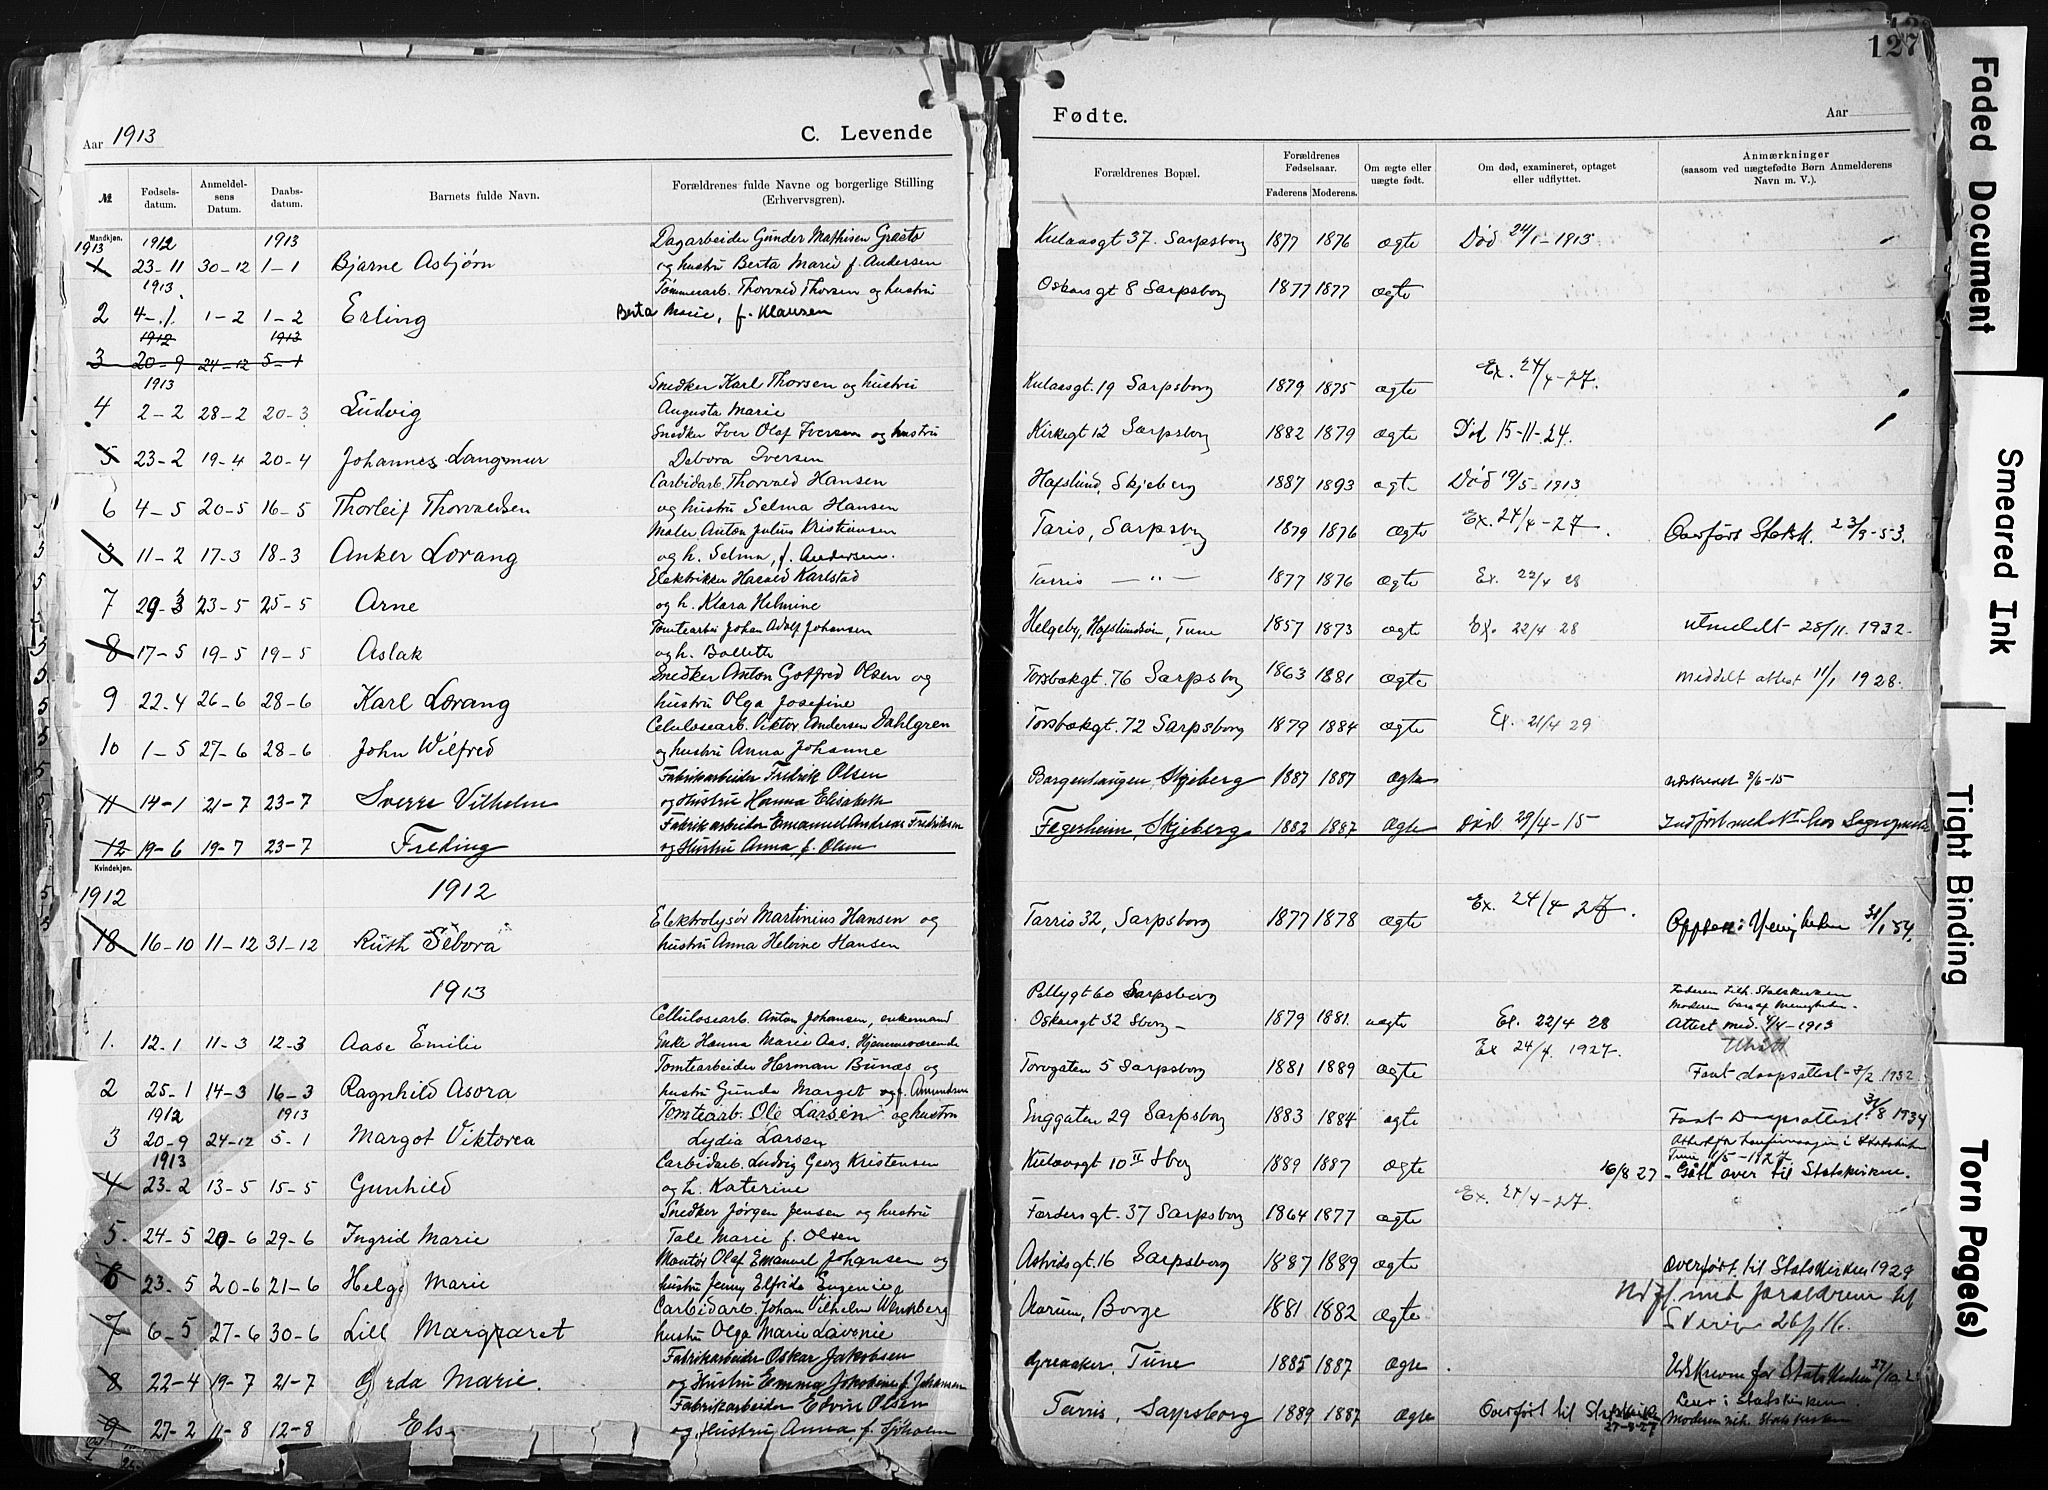 Aar 1913
C. Levende
№
Fødsels-
datum.
Anmeldel-
sens
Datum.
Daabs-
datum.
Barnets fulde Navn.
Forældrenes fulde Navne og borgerlige Stilling
(Erhvervsgren).
Mandkjøn.
1913 1912 1913 Dagarbeider Gunder Mathisen
1 23-11 30-12 1-1 Bjarne Asbjørn og hustru Berta Marie f. Andersen
1913 Tømmerarb. Thorvald Thorsen og hustru
2 4-1 1-2 1-2 Erling Berta Marie, f. Klausen
1912 1913
3 20-9 24-12 5-1
1913 Snedker Karl Thorsen og hustru
4 2-2 28-2 20-3 Ludvig Augusta Marie
Snedker Iver Olaf Iversen og hustru
5 23-2 19-4 20-4 Johannes Langmur Debora Iversen
Carbidarb. Thorvald Hansen
6 4-5 20-5 16-5 Thorleif Thorvaldsen og hustru Selma Hansen
Maler Anton Julius Kristiansen
3 11-2 17-3 18-3 Anker Lorang og h. Selma, f. Andersen.
Elektriker Harald Karlstad
7 29-3 23-5 25-5 Arne og h. Klara Helmine
Tomtearbei Johan Adolf Johansen
8 17-5 19-5 19-5 Aslak og h. Bollette
Snedker Anton Gotfred Olsen og
9 22-4 26-6 28-6 Karl Lorang hustru Olga Josefine
Celulosearb. Viktor Andersen Dahlgren
10 1-5 27-6 28-6 John Wilfred og hustru Anna Johanne
Fabrikarbeider Fredrik Olsen
11 14-1 21-7 23-7 Sverre Vilhelm og Hustru Hanna Elisabeth
Fabrikarbeider Emanuel Andreas Fredriksen
12 19-6 19-7 23-7 Freding og Hustru Anna f. Olsen
Kvindekjøn.
1912 1912
Elektrolysør Martinius Hansen og
18 16-10 11-12 31-12 Ruth Sebora hustru Anna Helvine Hansen
1913
Cellulosearb. Anton Johansen, enkemand
1. 12-1 11-3 12-3 Aase Emilie Enke Hanna Marie Aas. Hjemmeværende
Tomtearbeider Herman Bunæs og
2 25-1 14-3 16-3 Ragnhild Asora hustru Gunda Marget f. Amundsen
1912 1913 Tomtearb. Ole Larsen og hustru
3 20-9 24-12 5-1 Margot Viktorea Lydia Larsen
1913 Carbidarb. Ludvig Georg Kristensen
4 23-2 13-5 15-5 Gunhild og h. Katerine
Snedker Jørgen Jensen og hustru
5. 24-5 20-6 29-6 Ingrid Marie Tale Marie f. Olsen
Montør Olaf Emanuel Johansen og
6 23-5 20-6 21-6 Helga Marie hustru Jenny Elfrida Eugenie
Carbidarb. Johan Vilhelm Wenkberg
7 6-5 27-6 30-6 Lill Margraret hustru Olga Marie Lavenie
Fabrikarbeider Oskar Jakobsen
8 22-4 19-7 21-7 Gerda Marie. og Hustru Emma f. Johansen
Fabrikarbeider Edvin Olsen
9 27-2 11-8 12-8 Els og Hustru Anna, f. Sjöholm
127
Fødte.
Aar
Forældrenes Bopæl.
Forældrenes
Fødselsaar.
Faderens Moderens.
Om ægte eller
uægte født.
Om død, examineret, optaget
eller udflyttet.
Anmærkninger
(saasom ved uægtefødte Børn Anmelderens
Navn m. V.).
Kulaasgt 37. Sarpsborg 1877 1876 ægte Død 24/1-1913
Oskarsgt 8 Sarpsborg 1877 1877 ægte
Kulaasgt. 19 Sarpsborg 1879 1875 ægte Ex. 24/4-27.
Kirkegt 12 Sarpsborg 1882 1879 ægte Død 15-11-24.
Hafslund, Skjeberg 1887 1893 ægte Død 19/5-1913
Taris, Sarpsborg 1879 1876 ægte Ex. 24/4-27. Overført Statsk. 23/9-53.
Tarris — " — 1877 1876 ægte Ex. 22/4 28
Helgeby, Hafslundsøn, Tune 1857 1873 ægte Ex. 22/4 28 utmeldt 28/11. 1932.
Torsbækgt. 76 Sarpsborg 1863 1881 ægte Meddelt attest 11/1 1928.
Torsbækgt. 72 Sarpsborg 1879 1884 ægte Ex. 21/4 29
Borgenhaugen, Skjeberg 1887 1887 ægte Utskrevet 3/6-15
Fagerheim Skjeberg 1882 1887 Ægte Død 29/4-15 Indført med No hos Sogneprest
Tarris 32, Sarpsborg 1877 1878 ægte Ex. 24/4-27. 31/1 54.
Pellygt 60 Sarpsborg
Faderen tilh. Statskirken
Moderen Menigheden.
Oskarsgt 32 Sborg- 1879 1881. uægte Ex. 22/4 28 Attest med. 4/4-1913
Ex 24/4. 1927.
Torvgaten 5 Sarpsborg 1881 1889 ægte Faat daapsattest 3/2 1932.
Enggaten 29 Sarpsborg 1883 1884 ægte Faat Daapsattest 31/8 1934
Attest for konfirmasjon i Statskirken
Tune 1/5-1927
Kulaasgt 10 II Sborg 1889 1887 ægte 16/8 27 - Gått over til Statskirken.
Færdersgt. 37 Sarpsborg 1864 1877 ægte Ex. 24/4-27.
Astridsgt. 16 Sarpsborg 1887 1889 ægte Overført til Statskirken 1929
Aarum, Borge 1881 1882 ægte Udfl. med foreldrene til
Sverig 26/ 16.
Greaaker, Tune 1885 1887 Ægte Utskreven for Statskirken 27/10
Tarris, Sarpsborg 1889 1887 Ægte Overført til Statskirken 27-8-27 Lever i Statskirken.
Moderen tilh. Statskirken
Faded Document
Smeared Ink
Tight Binding
Torn Page(s)